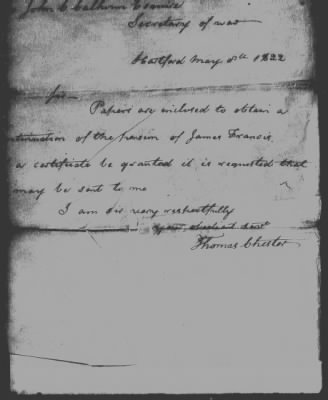 John C Calhoun Esquire
Secretary of war
Hartford May 8th 1822
Sir
Papers are enclosed to obtain a
of the pension of James Francis
a certificate be granted it is requested that
may be sent to me
I am Sir very respectfully
your obedient servt
Thomas Chester